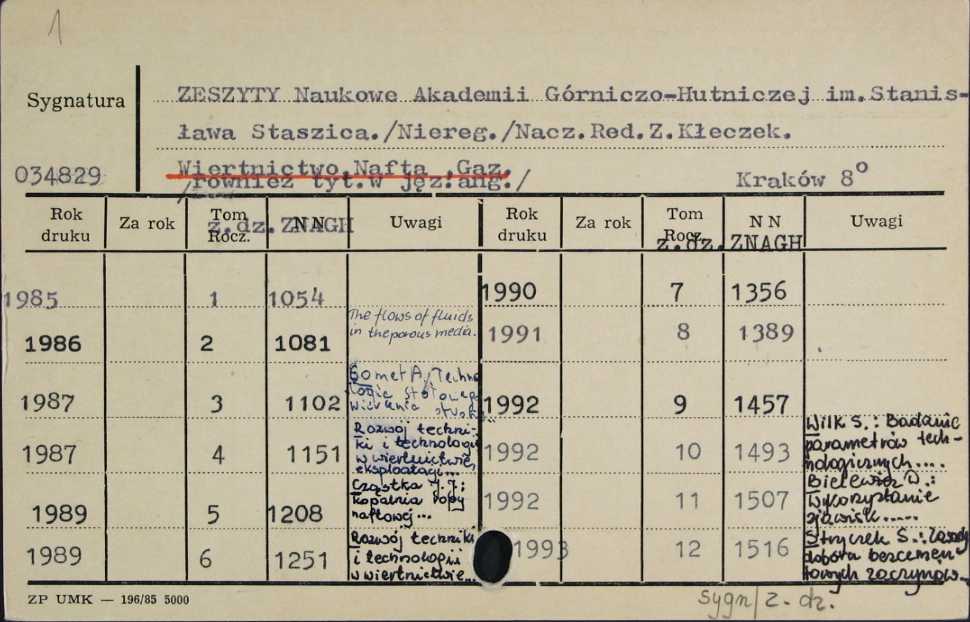 1
Sygnatura
ZESZYTY Naukowe Akademii Górniczo-Hutniczej im.Stanis-
ława Staszica./Niereg./Nacz.Red.Z.Kłeczek.
034829
Wiertnictwo Nafta Gaz.
/również tyt.w jęz.ang./
Kraków 8°
Rok druku Za rok Tom Rocz. N N Uwagi Rok druku Za rok Tom Rocz. N N Uwagi
z.dz.ZNAGH z.dz.ZNAGH
1985 1 1054 1990 7 1356
1986 2 1081 The flows of fluids in the porous media. 1991 8 1389
1987 3 1102 Gomet A. 1992 9 1457
1987 4 1151 Rozwój techni- ki i technologii w wiertnictwie, eksploatacji... 1992 10 1493 Wilk S.: Badanie parametrów tech- nologicznych....
1989 5 1208 Cząstka J.J: kopalnia ropy naftowej... 1992 11 1507 Bielewicz D.: Wykorzystanie zjawisk.....
1989 6 1251 Rozwój techniki i technologii w wiertnictwie... 1993 12 1516 Stryczek S.: Zasady doboru bezcemen- towych zaczynów...
ZP UMK — 196/85 5000
sygn/z. dz.